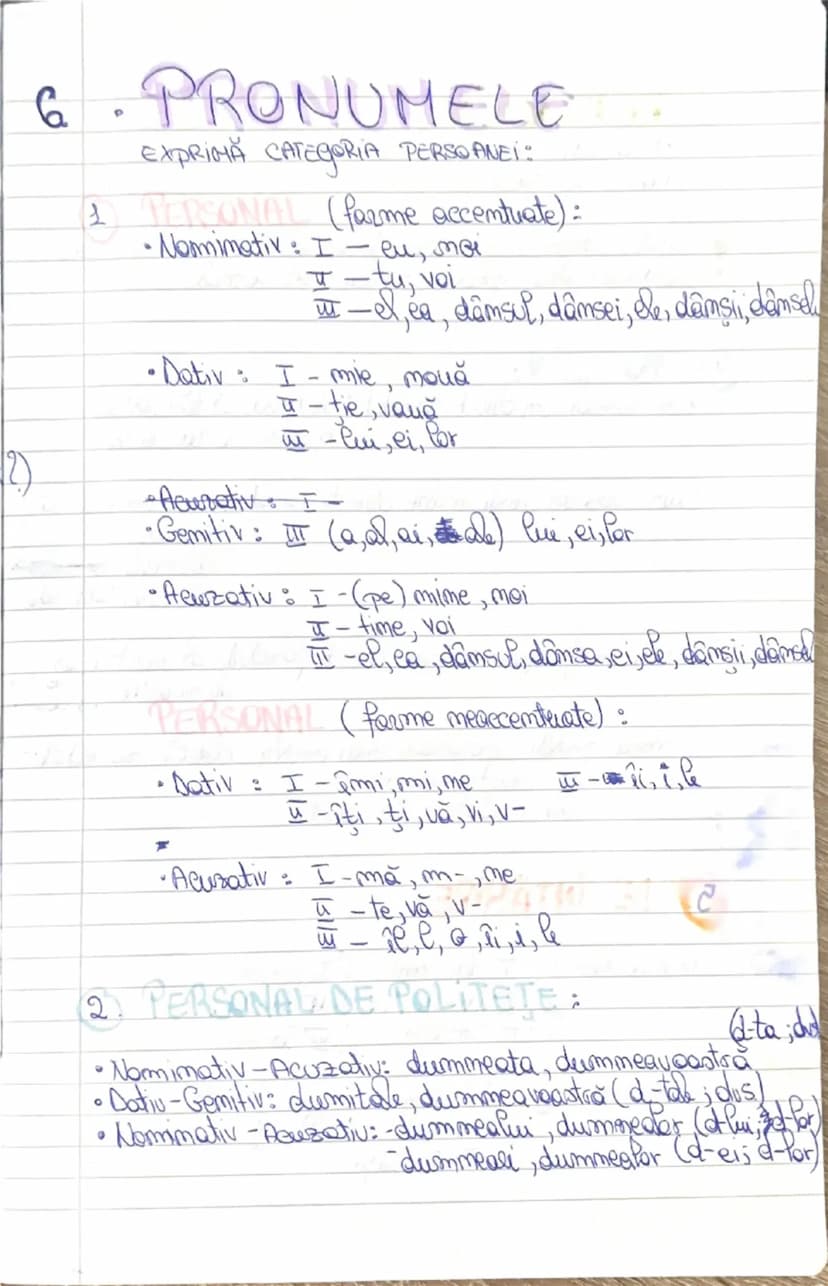 6. PRONUMELE
EXPRIMĂ CATEGORIA PERSOANEI:
1 PERSONAL (forme accentuate):
• Nominativ: I – eu, noi
II – tu, voi
III – el, ea, dâmsul, dâmsei, ele, dâmșii, dâmsele
• Dativ: I – mie, nouă
II – ție, vouă
III – lui, ei, lor
2)
• Acuzativ: I –
• Genitiv: III (a, al, ai, ale) lui, ei, lor
• Acuzativ: I – (pe) mine, noi
II – tine, voi
III – el, ea, dâmsul, dâmsa, ei, ele, dâmșii, dâmsel
PERSONAL (forme neaccentuate):
• Dativ: I – îmi, mi, ne III – îi, i, le
II – îți, ți, vă, vi, v-
• Acuzativ: I – mă, m-, ne
II – te, vă, v-
III – îl, l, o, îi, i, le
2. PERSONAL DE POLITEȚE:
(d-ta; dvs
• Nominativ-Acuzativ: dumneata, dumneavoastră
• Dativ-Genitiv: dumitale, dumneavoastră (d-tale; dvs)
• Nominativ-Acuzativ: - dumnealui, dumnealor (d-lui; d-lor)
- dumneaei, dumnealor (d-ei; d-lor)